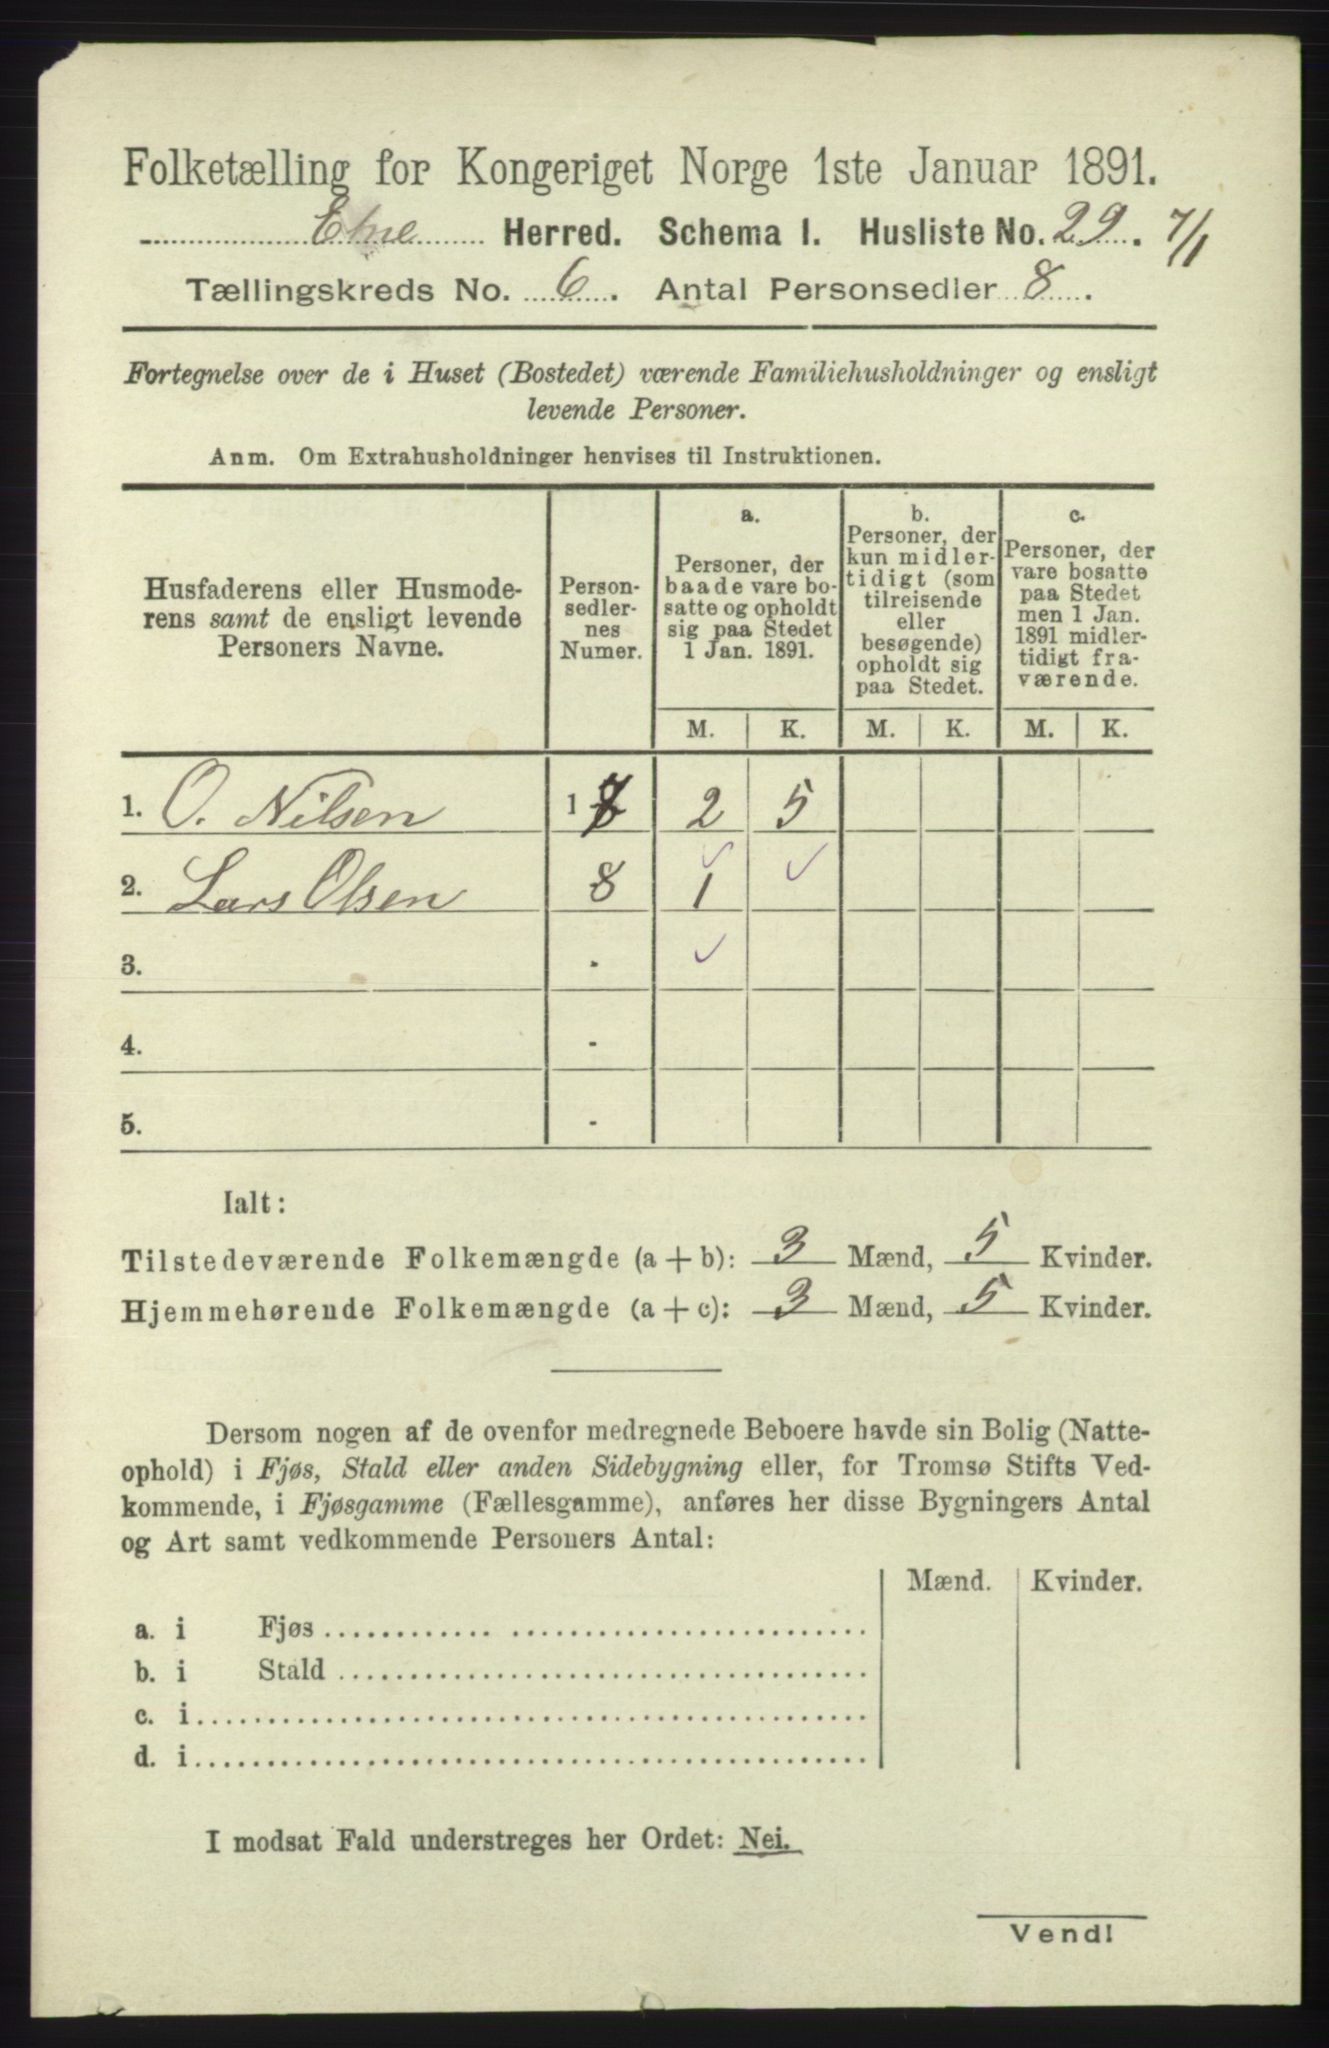 Folketælling for Kongeriget Norge 1ste Januar 1891.
Etne Herred. Schema I. Husliste No. 29. 7/1
Tællingskreds No. 6. Antal Personsedler 8.
Fortegnelse over de i Huset (Bostedet) værende Familiehusholdninger og ensligt
levende Personer.
Anm. Om Extrahusholdninger henvises til Instruktionen.
Husfaderens eller Husmode-
rens samt de ensligt levende
Personers Navne.
Person-
sedler-
nes
Numer.
a.
Personer, der
baade vare bo-
satte og opholdt
sig paa Stedet
1 Jan. 1891.
b.
Personer, der
kun midler-
tidigt (som
tilreisende
eller
besøgende)
opholdt sig
paa Stedet.
c.
Personer, der
vare bosatte
paa Stedet
men 1 Jan.
1891 midler-
tidigt fra-
værende.
M. K. M. K. M. K.
1. O. Nilsen 1 7 2 5
2. Lars Olsen 8 1
3. -
4. -
5. -
Ialt:
Tilstedeværende Folkemængde (a + b): 3 Mænd, 5 Kvinder.
Hjemmehørende Folkemængde (a + c): 3 Mænd, 5 Kvinder.
Dersom nogen af de ovenfor medregnede Beboere havde sin Bolig (Natte-
ophold) i Fjøs, Stald eller anden Sidebygning eller, for Tromsø Stifts Ved-
kommende, i Fjøsgamme (Fællesgamme), anføres her disse Bygningers Antal
og Art samt vedkommende Personers Antal:
Mænd. Kvinder.
a. i Fjøs
b. i Stald
c. i
d. i
I modsat Fald understreges her Ordet: Nei.
Vend!